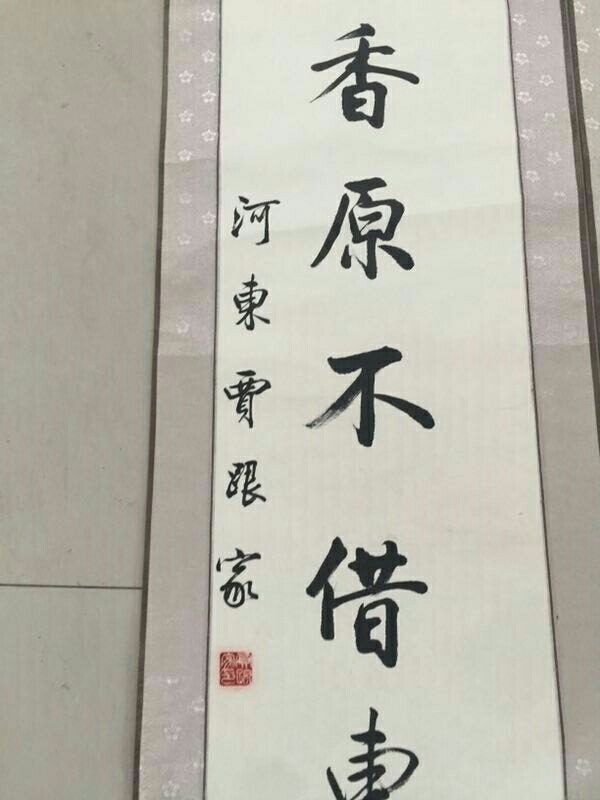 香原不借
河東賈跟家